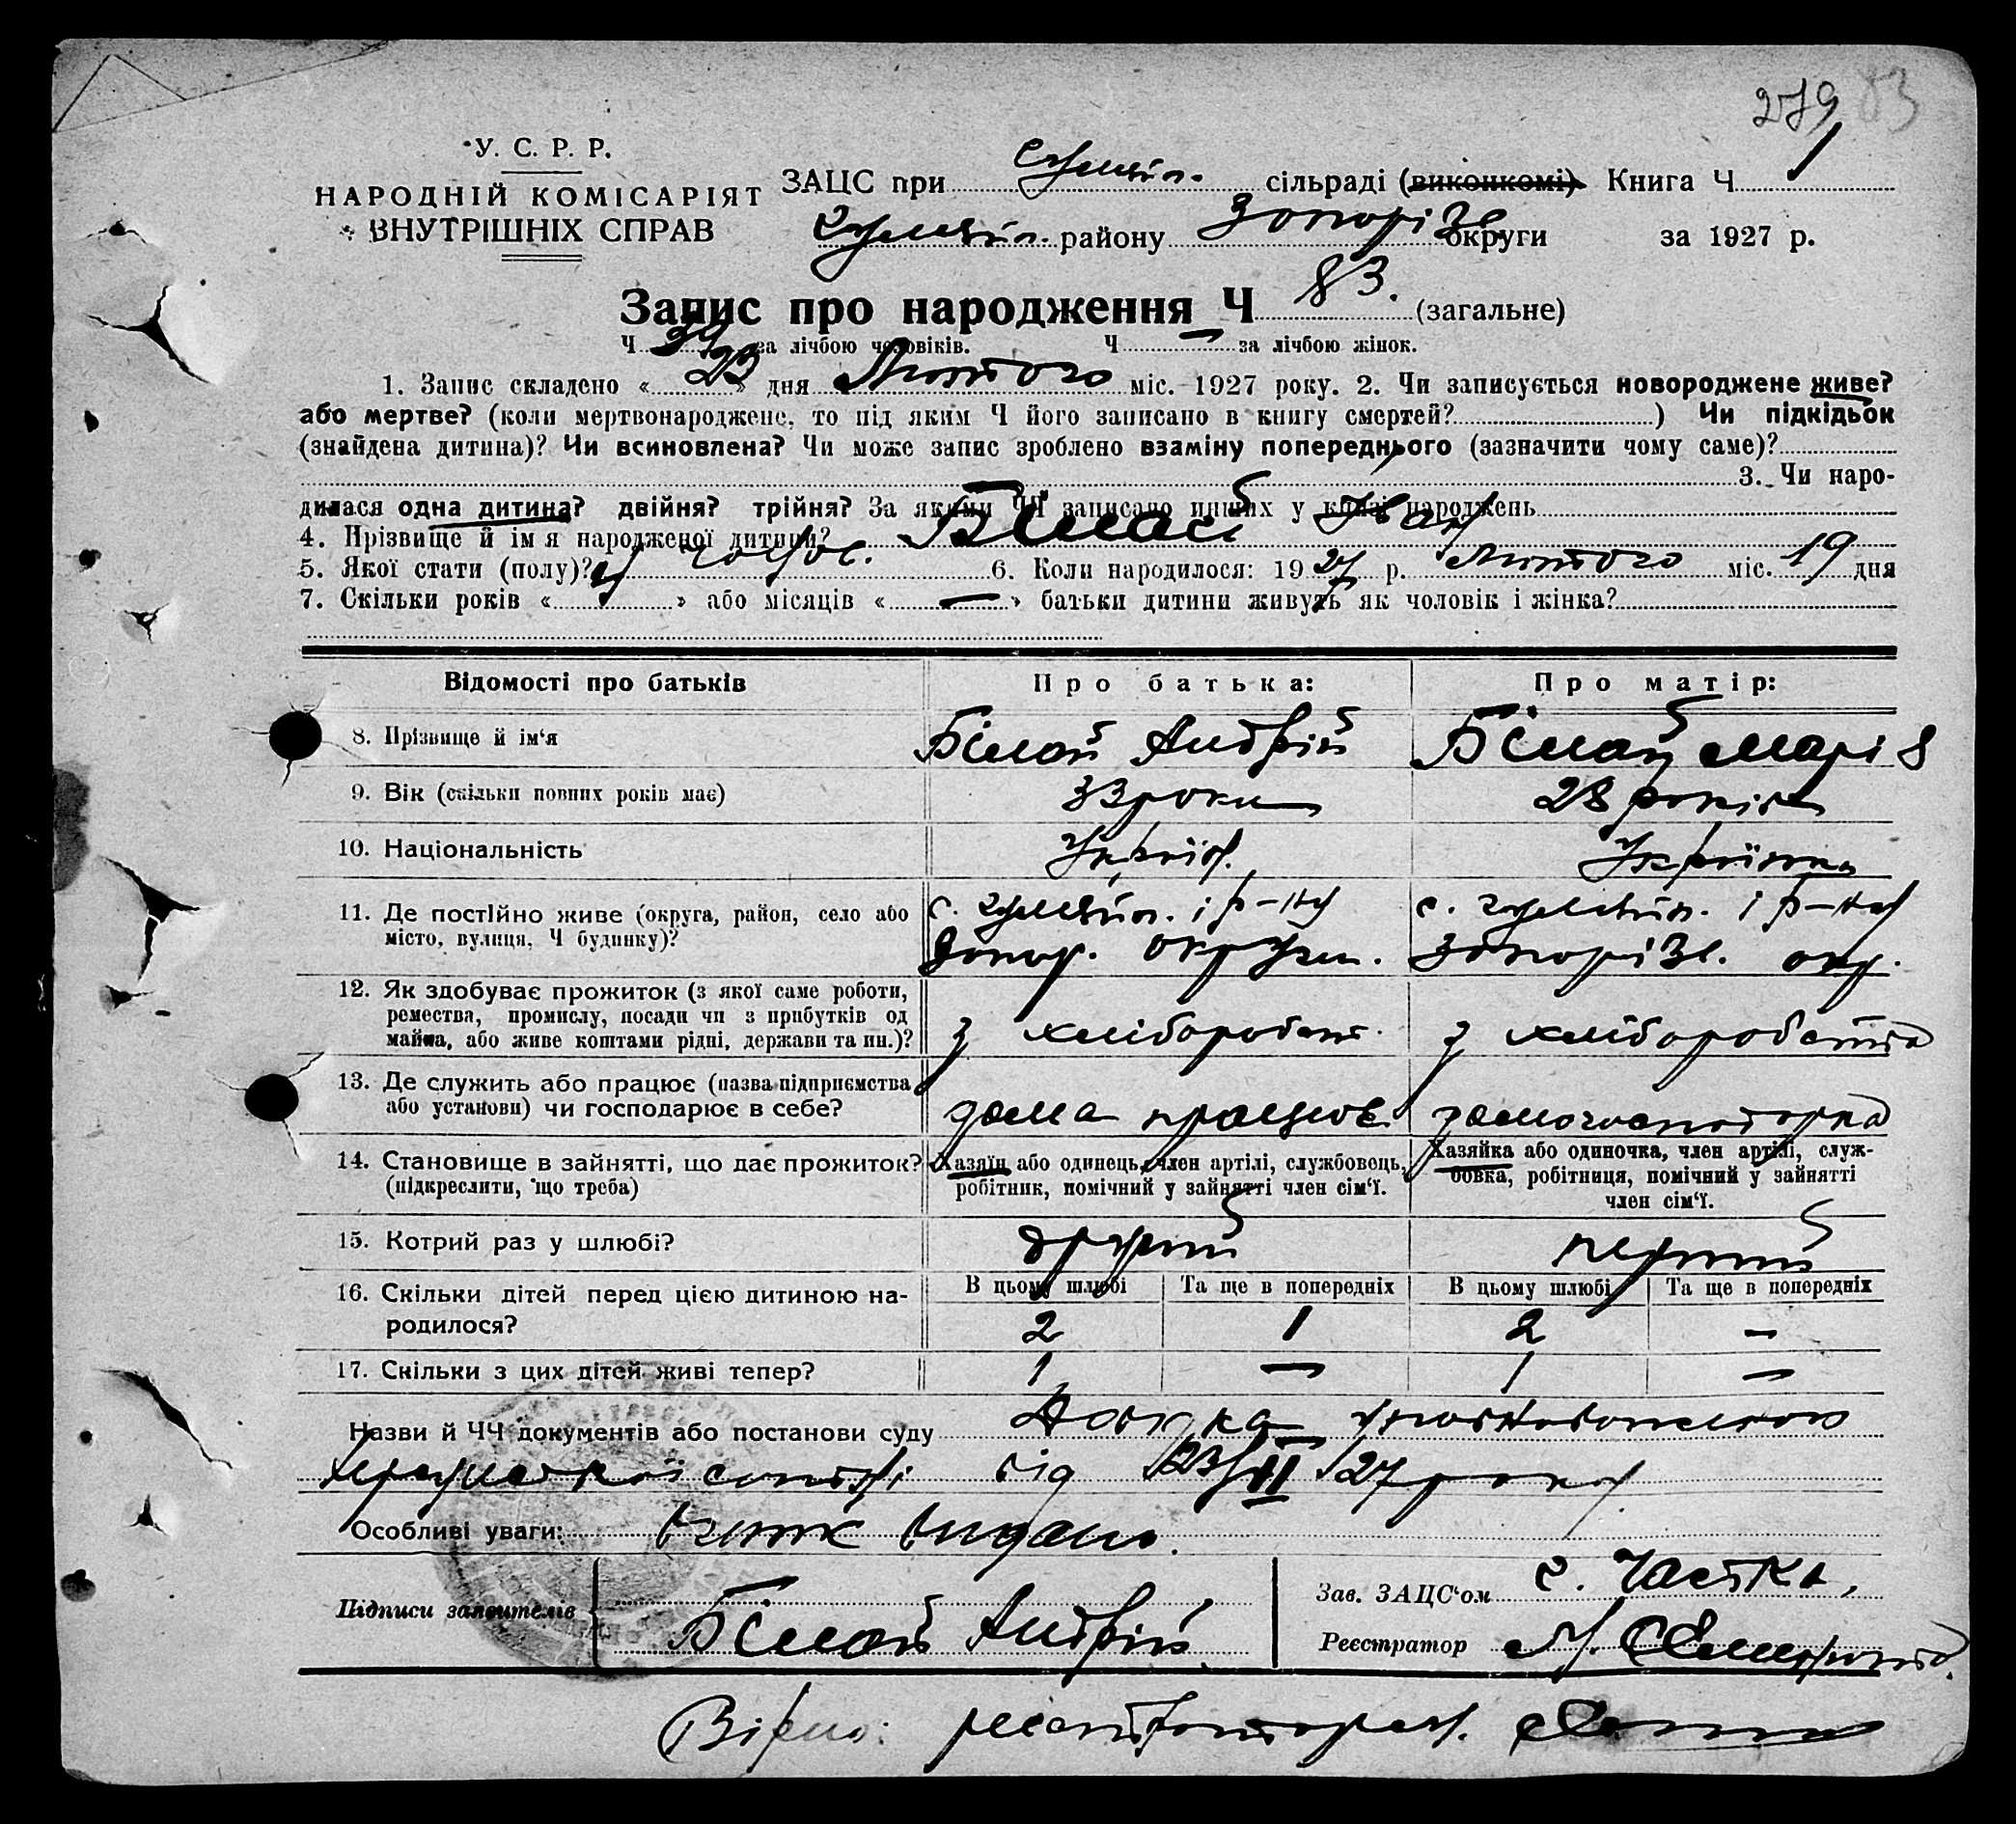 279 83
У. С. Р. Р.
НАРОДНІЙ КОМІСАРІЯТ
ВНУТРІШНІХ СПРАВ
ЗАЦС при Гуляйп. сільраді (виконкомі). Книга Ч 1
Гуляйп. району Запорізь. округи за 1927 р.
Запис про народження Ч 83. (загальне)
Ч 39 за лічбою чоловіків. Ч — за лічбою жінок.
1. Запис складено « 23 » дня Лютого міс. 1927 року. 2. Чи записується новороджене живе?
або мертве? (коли мертвонароджене, то під яким Ч його записано в книгу смертей? ) Чи підкідьок
(знайдена дитина)? Чи всиновлена? Чи може запис зроблено взаміну попереднього (зазначити чому саме)?
3. Чи наро-
дилася одна дитина? двійня? трійня? За якими ЧЧ записано инших у книзі народжень
4. Прізвище й ім я народженої дитини? Білай Іван
5. Якої стати (полу)? чолов. 6. Коли народилося: 1927 р. Лютого міс. 19 дня
7. Скільки років « 4 » або місяців « — » батьки дитини живуть як чоловік і жінка?
Відомості про батьків Про батька: Про матір:
8. Прізвище й ім‘я Білай Андрій Білай Марія
9. Вік (скільки повних років має) 33 роки 28 років
10. Національність Україн. Українка
11. Де постійно живе (округа, район, село або с. Гуляйп. і р-ну с. Гуляйп. і р-ну
місто, вулиця, Ч будинку)? Запор. округи. Запорізь. окр.
12. Як здобуває прожиток (з якої саме роботи,
ремества, промислу, посади чи з прибутків од
майна, або живе коштами рідні, держави та ин.)? з хліборобст. з хліборобства
13. Де служить або працює (назва підприємства
або установи) чи господарює в себе? дома працює домогосподарка
14. Становище в зайнятті, що дає прожиток? Хазяїн або одинець, член артілі, службовець, Хазяйка або одиночка, член артілі, служ-
(підкреслити, що треба) робітник, помічний у зайнятті член сім‘ї. бовка, робітниця, помічний у зайнятті
член сім‘ї.
15. Котрий раз у шлюбі? другий перший
16. Скільки дітей перед цією дитиною на- В цьому шлюбі Та ще в попередніх В цьому шлюбі Та ще в попередніх
родилося? 2 1 2 —
17. Скільки з цих дітей живі тепер? 1 — 1 —
Назви й ЧЧ документів або постанови суду Довідка
від 23/II 27 року
Особливі уваги: Витяг видано.
Підписи заявителів Білай Андрій
Зав. ЗАЦС‘ом
Реєстратор
Вірно: реєстратор